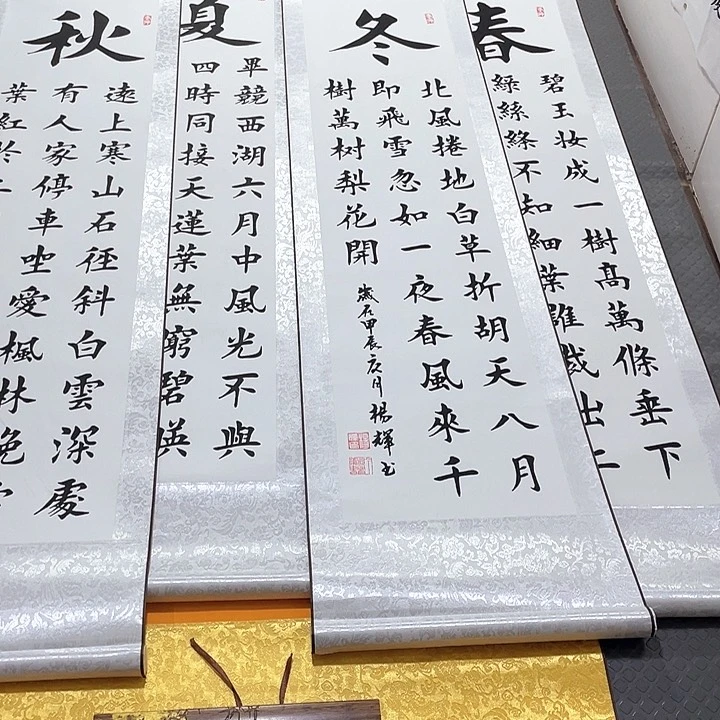 春
碧玉妆成一樹高萬條垂下
綠絲絛不知細葉誰裁出二
冬
北風捲地白草折胡天八月
即飛雪忽如一夜春風來千
樹萬树梨花開
歲在甲辰月楊輝书
夏
畢競西湖六月中風光不與
四時同接天蓮葉無窮碧映
秋
遠上寒山石徑斜白雲深處
有人家停車坐愛楓林晚
葉紅於二